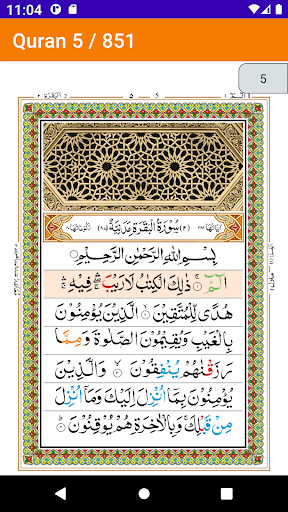 11:04
Quran 5 / 851
5
البقرة ٢
5
الٓمّٓ ١
سُوْرَةُ الْبَقَرَةِ مَدَنِيَّةٌ
بِسْمِ اللّٰهِ الرَّحْمٰنِ الرَّحِيْمِ
الٓمّٓ ۚ ذٰلِكَ الْكِتٰبُ لَا رَيْبَ ۛ فِيْهِ ۛ
هُدًى لِّلْمُتَّقِيْنَ ۙ الَّذِيْنَ يُؤْمِنُوْنَ
بِالْغَيْبِ وَيُقِيْمُوْنَ الصَّلٰوةَ وَمِمَّا
رَزَقْنٰهُمْ يُنْفِقُوْنَ ۙ وَالَّذِيْنَ
يُؤْمِنُوْنَ بِمَآ اُنْزِلَ اِلَيْكَ وَمَآ اُنْزِلَ
مِنْ قَبْلِكَ ۚ وَبِالْاٰخِرَةِ هُمْ يُوْقِنُوْنَ ؕ